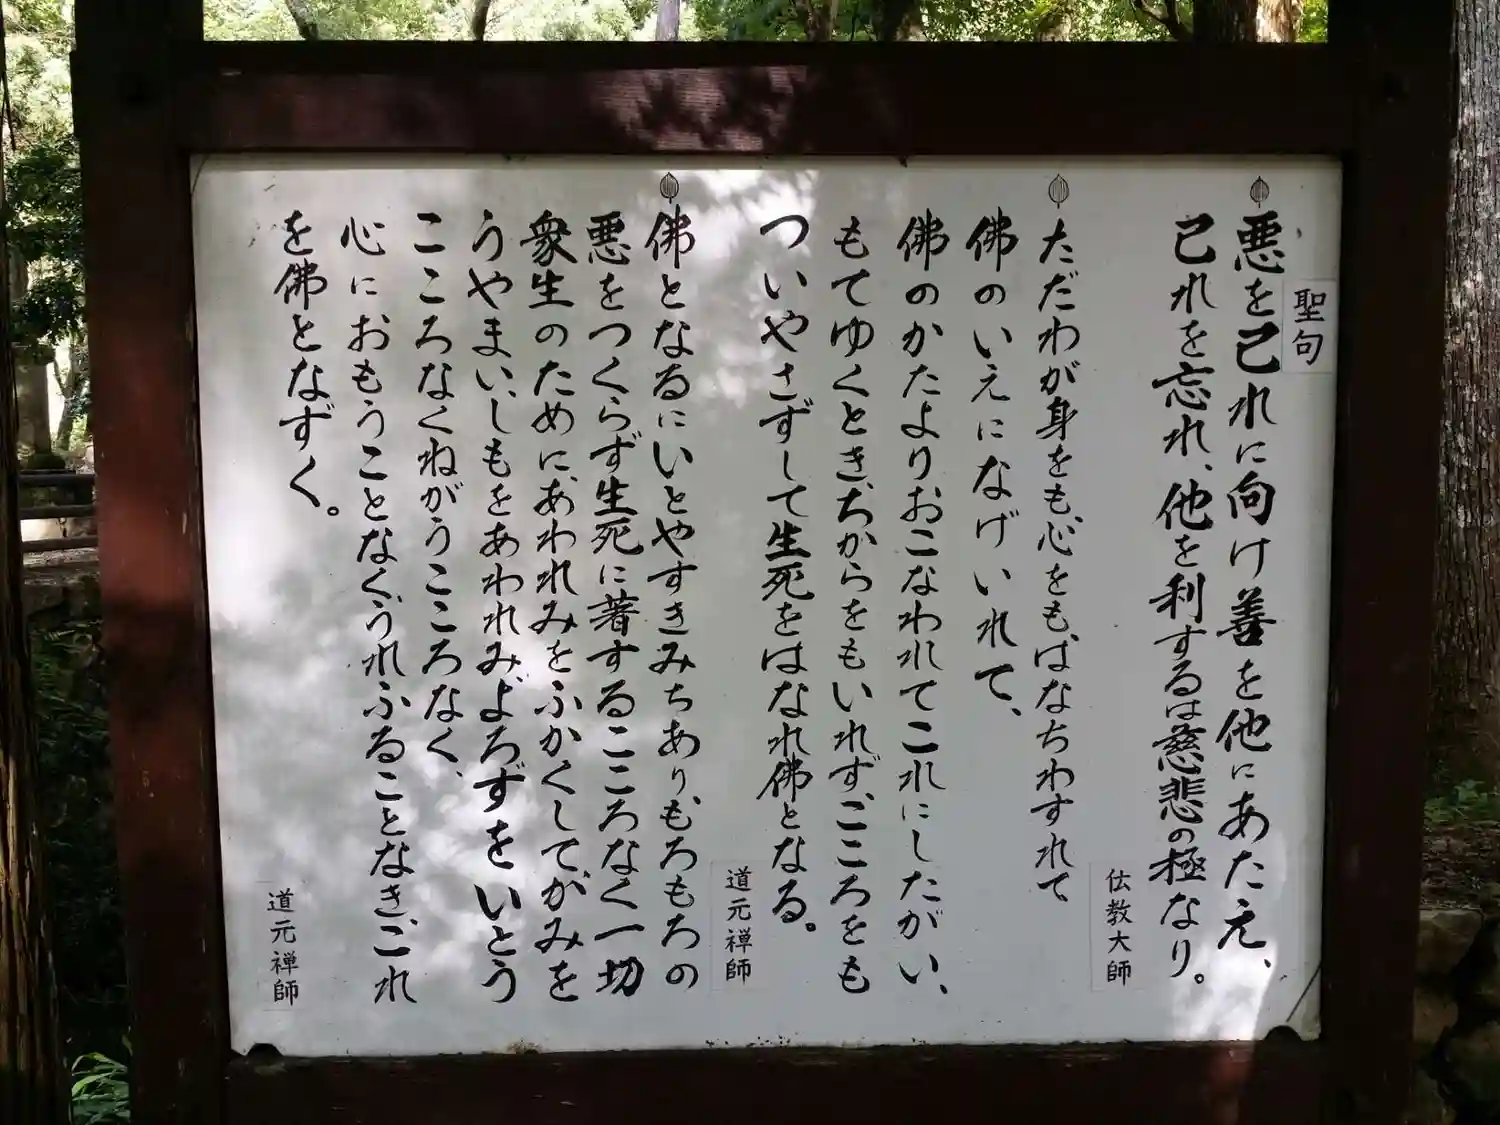 聖句
悪を己れに向け善を他にあたえ、
己れを忘れ、他を利するは慈悲の極なり。
伝教大師
ただわが身をも、心をも、はなちわすれて
佛のいえになげいれて、
佛のかたよりおこなわれてこれにしたがい、
もてゆくとき、ちからをもいれず、こころをも
ついやさずして生死をはなれ佛となる。
道元禅師
佛となるにいとやすきみちあり、もろもろの
悪をつくらず生死に著するこころなく一切
衆生のために、あわれみをふかくして、かみを
うやまい、しもをあわれみ、よろずをいとう
こころなくねがうこころなく、
心におもうことなく、うれふることなき、これ
を佛となずく。
道元禅師